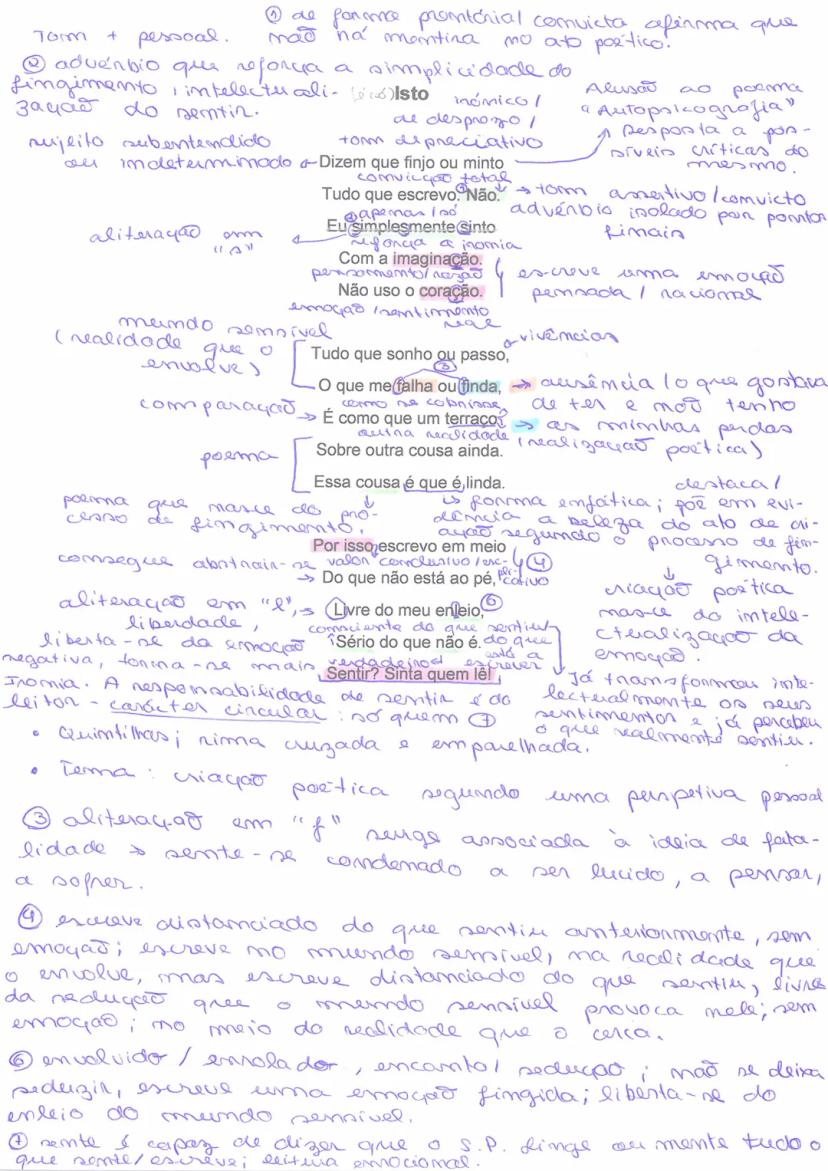 ① de forma promtórial convicta afirma que
Tom + pessoal. não há mentira no ato poético.
② advérbio que reforça a simplicidade do
fingimento, intelectuali-
zação do sentir.
Isto
irónico /
de desprezo /
tom depreciativo
Alusão ao poema
"Autopsicografia"
Resposta a pos-
síveis críticas do
mesmo.
sujeito subentendido
ou indeterminado
Dizem que finjo ou minto
convicção total
Tudo que escrevo. ① Não.
→ tom assertivo/convicto
advérbio isolado por pontos
finais
② apenas / só
Eu simplesmente sinto
aliteração em
"s"
reforça a ironia
Com a imaginação.
pensamento/razão
Não uso o coração.
escreve uma emoção
pensada / racional
emoção /sentimento
real
mundo sensível
(realidade que o
envolve)
vivências
Tudo que sonho ou passo,
③
O que me falha ou finda,
→ ausência (o que gostava
de ter e não tenho
como se cobrisse
comparação →
É como que um terraço
→ as minhas perdas
outra realidade (realização poética)
poema
Sobre outra cousa ainda.
Essa cousa é que é linda.
destaca /
↳ forma enfática; põe em evi-
dência a beleza do ato de cri-
ação segundo o processo de fin-
gimento.
poema que nasce do pro-
cesso de fingimento.
Por isso escrevo em meio
valor conclusivo/expli-
cativo
④
consegue abstrair-se
→ Do que não está ao pé,
criação poética
nasce do intele-
ctualização da
emoção.
aliteração em "l", →
liberdade,
Livre do meu enleio, ⑥
consciente do que sentiu/
do que
está a
escrever
liberta-se da emoção
negativa, torna-se mais
Sério do que não é.
verdadeiro
Sentir? Sinta quem lê!
Já transformou inte-
lectualmente os seus
sentimentos e já percebeu
o que realmente sentiu.
Ironia. A responsabilidade de sentir é do
leitor - carácter circular: só quem ⑦
• Quintilhas; rima cruzada e emparelhada.
• Tema: criação poética segundo uma perspetiva pessoal
③ aliteração em "f" surge associada à ideia de fata-
lidade → sente-se condenado a ser lucido, a pensar,
a sofrer.
④ escreve distanciado do que sentiu anteriormente, sem
emoção; escreve no mundo sensível, na realidade que
o envolve, mas escreve distanciado do que sentiu, livre
da sedução que o mundo sensível provoca nele; sem
emoção; no meio do realidade que o cerca.
⑥ envolvido / enrolado, encanto/ sedução; não se deixa
seduzir, escreve uma emoção fingida; liberta-se do
enleio do mundo sensível.
⑦ sente é capaz de dizer que o S.P. finge ou mente tudo o
que sente/escreve; leitura emocional.